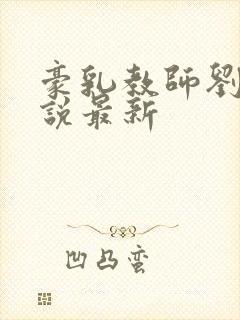 豪乳教師劉
說最新
凹凸蛮